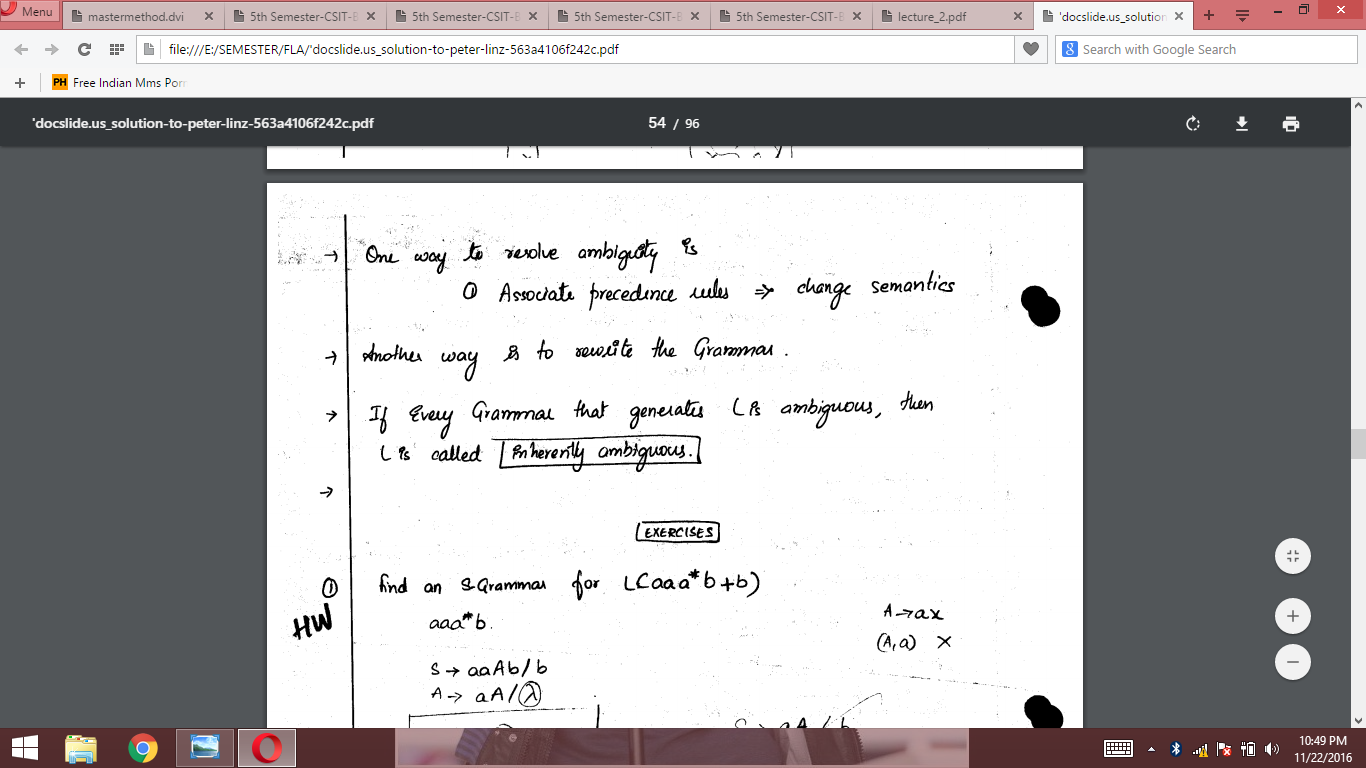 Menu
mastermethod.dvi
5th Semester-CSIT-B
5th Semester-CSIT-B
5th Semester-CSIT-B
5th Semester-CSIT-B
lecture_2.pdf
'docslide.us_solution
file:///E:/SEMESTER/FLA/'docslide.us_solution-to-peter-linz-563a4106f242c.pdf
Search with Google Search
PH Free Indian Mms Porr
'docslide.us_solution-to-peter-linz-563a4106f242c.pdf
54 / 96
→ One way to resolve ambiguity is
① Associate precedence rules ⇒ change semantics
→ Another way is to rewrite the Grammar.
→ If Every Grammar that generates L is ambiguous, then
L is called inherently ambiguous.
→
EXERCISES
① find an S-Grammar for L(aaa*b+b)
HW
aaa*b.
A→ax
(A,a) X
S → aaAb/b
A → aA/λ
S → aA / b
10:49 PM
11/22/2016